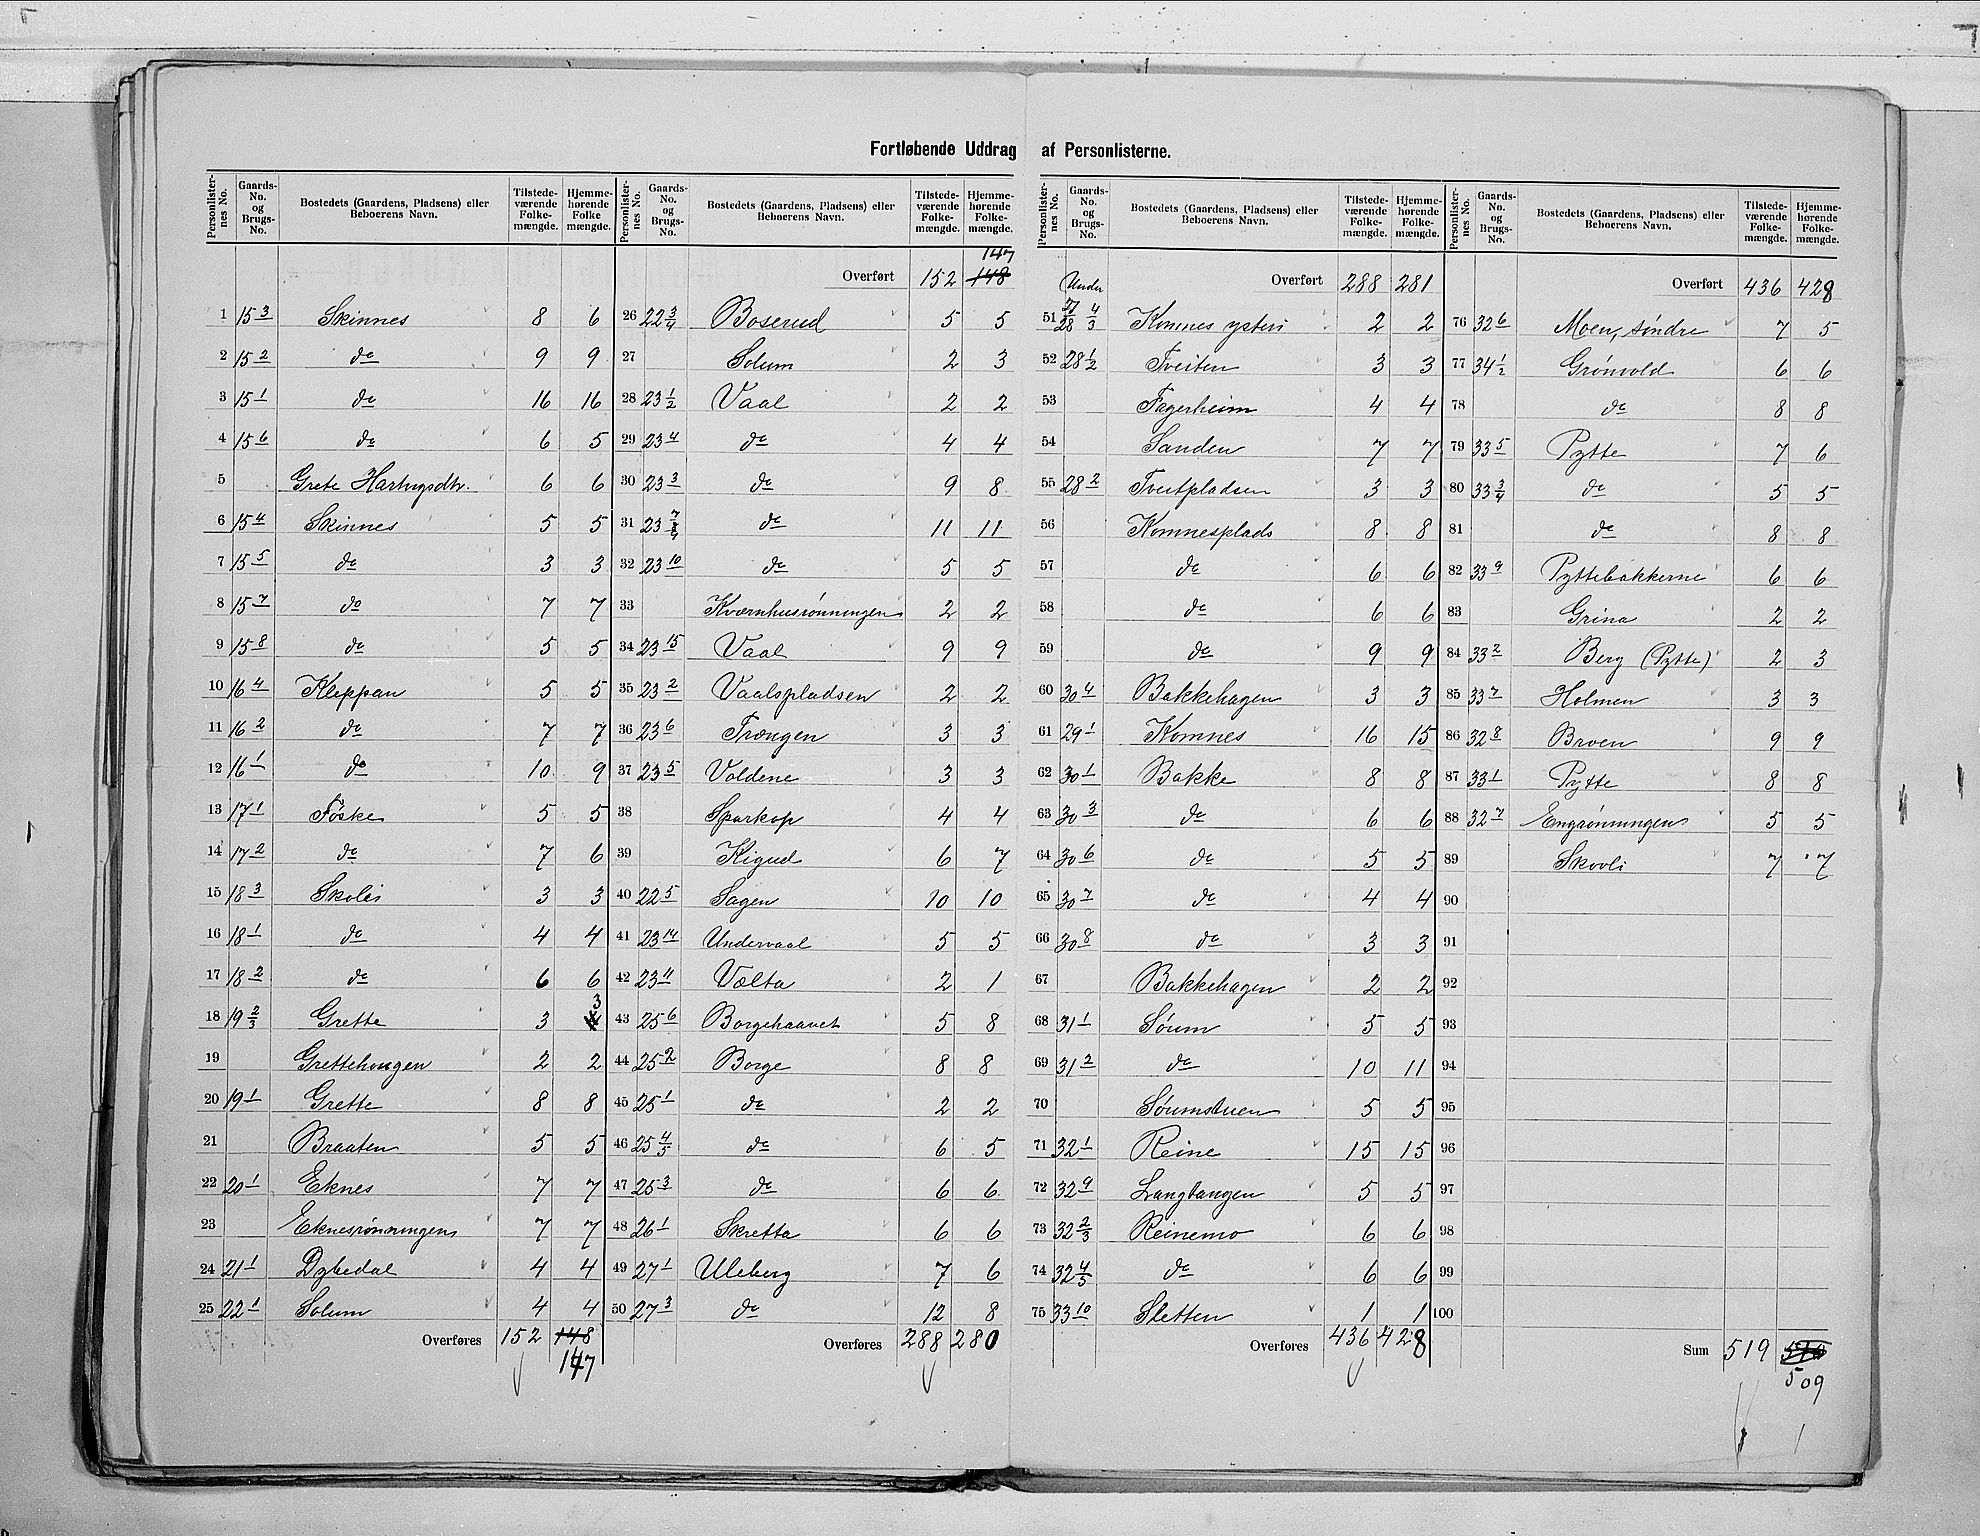 Fortløbende Uddrag af Personlisterne.
Personlisternes No. Gaards-No. og Brugs-No. Bostedets (Gaardens, Pladsens) eller Beboerens Navn. Tilstedeværende Folkemængde. Hjemmehørende Folkemængde.
1 15 3 Skinnes 8 6
2 15 2 do 9 9
3 15 1 do 16 16
4 15 6 do 6 5
5 Grete Hartvigsdtr. 6 6
6 15 4 Skinnes 5 5
7 15 5 do 3 3
8 15 7 do 7 7
9 15 8 do 5 5
10 16 4 Kleppan 5 5
11 16 2 do 7 7
12 16 1 do 10 9
13 17 1 Föske 5 5
14 17 2 do 7 6
15 18 3 Skoli 3 3
16 18 1 do 4 4
17 18 2 do 6 6
18 19 2/3 Grette 3 3
19 Grettehougen 2 2
20 19 1 Grette 8 8
21 Braaten 5 5
22 20 1 Eknes 7 7
23 Eknesrønningen 7 7
24 21 1 Dybedal 4 4
25 22 1 Solum 4 4
Overføres 152 148
147
Personlisternes No. Gaards-No. og Brugs-No. Bostedets (Gaardens, Pladsens) eller Beboerens Navn. Tilstedeværende Folkemængde. Hjemmehørende Folkemængde.
147
Overført 152 148
26 22 3/4 Boserud 5 5
27 Solum 2 3
28 23 1/2 Vaal 2 2
29 23 4 do 4 4
30 23 3 do 9 8
31 23 7/8/9 do 11 11
32 23 10 do 5 5
33 Kværnhusrønningen 2 2
34 23 15 Vaal 9 9
35 23 2 Vaalspladsen 2 2
36 23 6 Trængen 3 3
37 23 5 Voldene 3 3
38 Sparkop 4 4
39 Kigud 6 7
40 22 5 Sagen 10 10
41 23 14 Undervaal 5 5
42 23 11 Vælta 2 1
43 25 6 Borgehaavet 5 8
44 25 2 Borge 8 8
45 25 1 do 2 2
46 25 4/5 do 6 5
47 25 3 do 6 6
48 26 1 Skretta 6 6
49 27 1 Uleberg 7 6
50 27 3 do 12 8
Overføres 288 280
Personlisternes No. Gaards-No. og Brugs-No. Bostedets (Gaardens, Pladsens) eller Beboerens Navn. Tilstedeværende Folkemængde. Hjemmehørende Folkemængde.
Under Overført 288 281
51 28 4/3 Komnes ysteri 2 2
52 28 1/2 Tveiten 3 3
53 Fagerheim 4 4
54 Sanden 7 7
55 28 2 Tveitpladsen 3 3
56 Komnesplads 8 8
57 do 6 6
58 do 6 6
59 do 9 9
60 30 4 Bakkehagen 3 3
61 29 1 Komnes 16 15
62 30 1 Bakke 8 8
63 30 3 do 6 6
64 30 6 do 5 5
65 30 7 do 4 4
66 30 8 do 3 3
67 Bakkehagen 2 2
68 31 1 Søum 5 5
69 31 2 do 10 11
70 Søumstuen 5 5
71 32 1 Reine 15 15
72 32 9 Langtangen 5 5
73 32 2/3 Reinemo 6 6
74 32 4/5 do 6 6
75 33 10 Sletten 1 1
Overføres 436 428
Personlisternes No. Gaards-No. og Brugs-No. Bostedets (Gaardens, Pladsens) eller Beboerens Navn. Tilstedeværende Folkemængde. Hjemmehørende Folkemængde.
Overført 436 428
76 32 6 Moen, søndre 7 5
77 34 1/2 Grønvold 6 6
78 do 8 8
79 33 5 Pytte 7 6
80 33 3/4 do 5 5
81 do 8 8
82 33 9 Pyttebakkerne 6 6
83 Grina 2 2
84 33 2 Berg (Pytte) 2 3
85 33 7 Holmen 3 3
86 32 8 Broen 9 9
87 33 1 Pytte 8 8
88 32 7 Engrønningen 5 5
89 Skovli 7 7
90
91
92
93
94
95
96
97
98
99
100
Sum 519
509